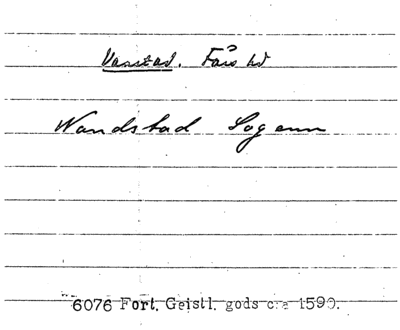 Vanstad. Färs hd
Wandstad Sogenn
6076 Fort. Geistl. gods c:a 1590.